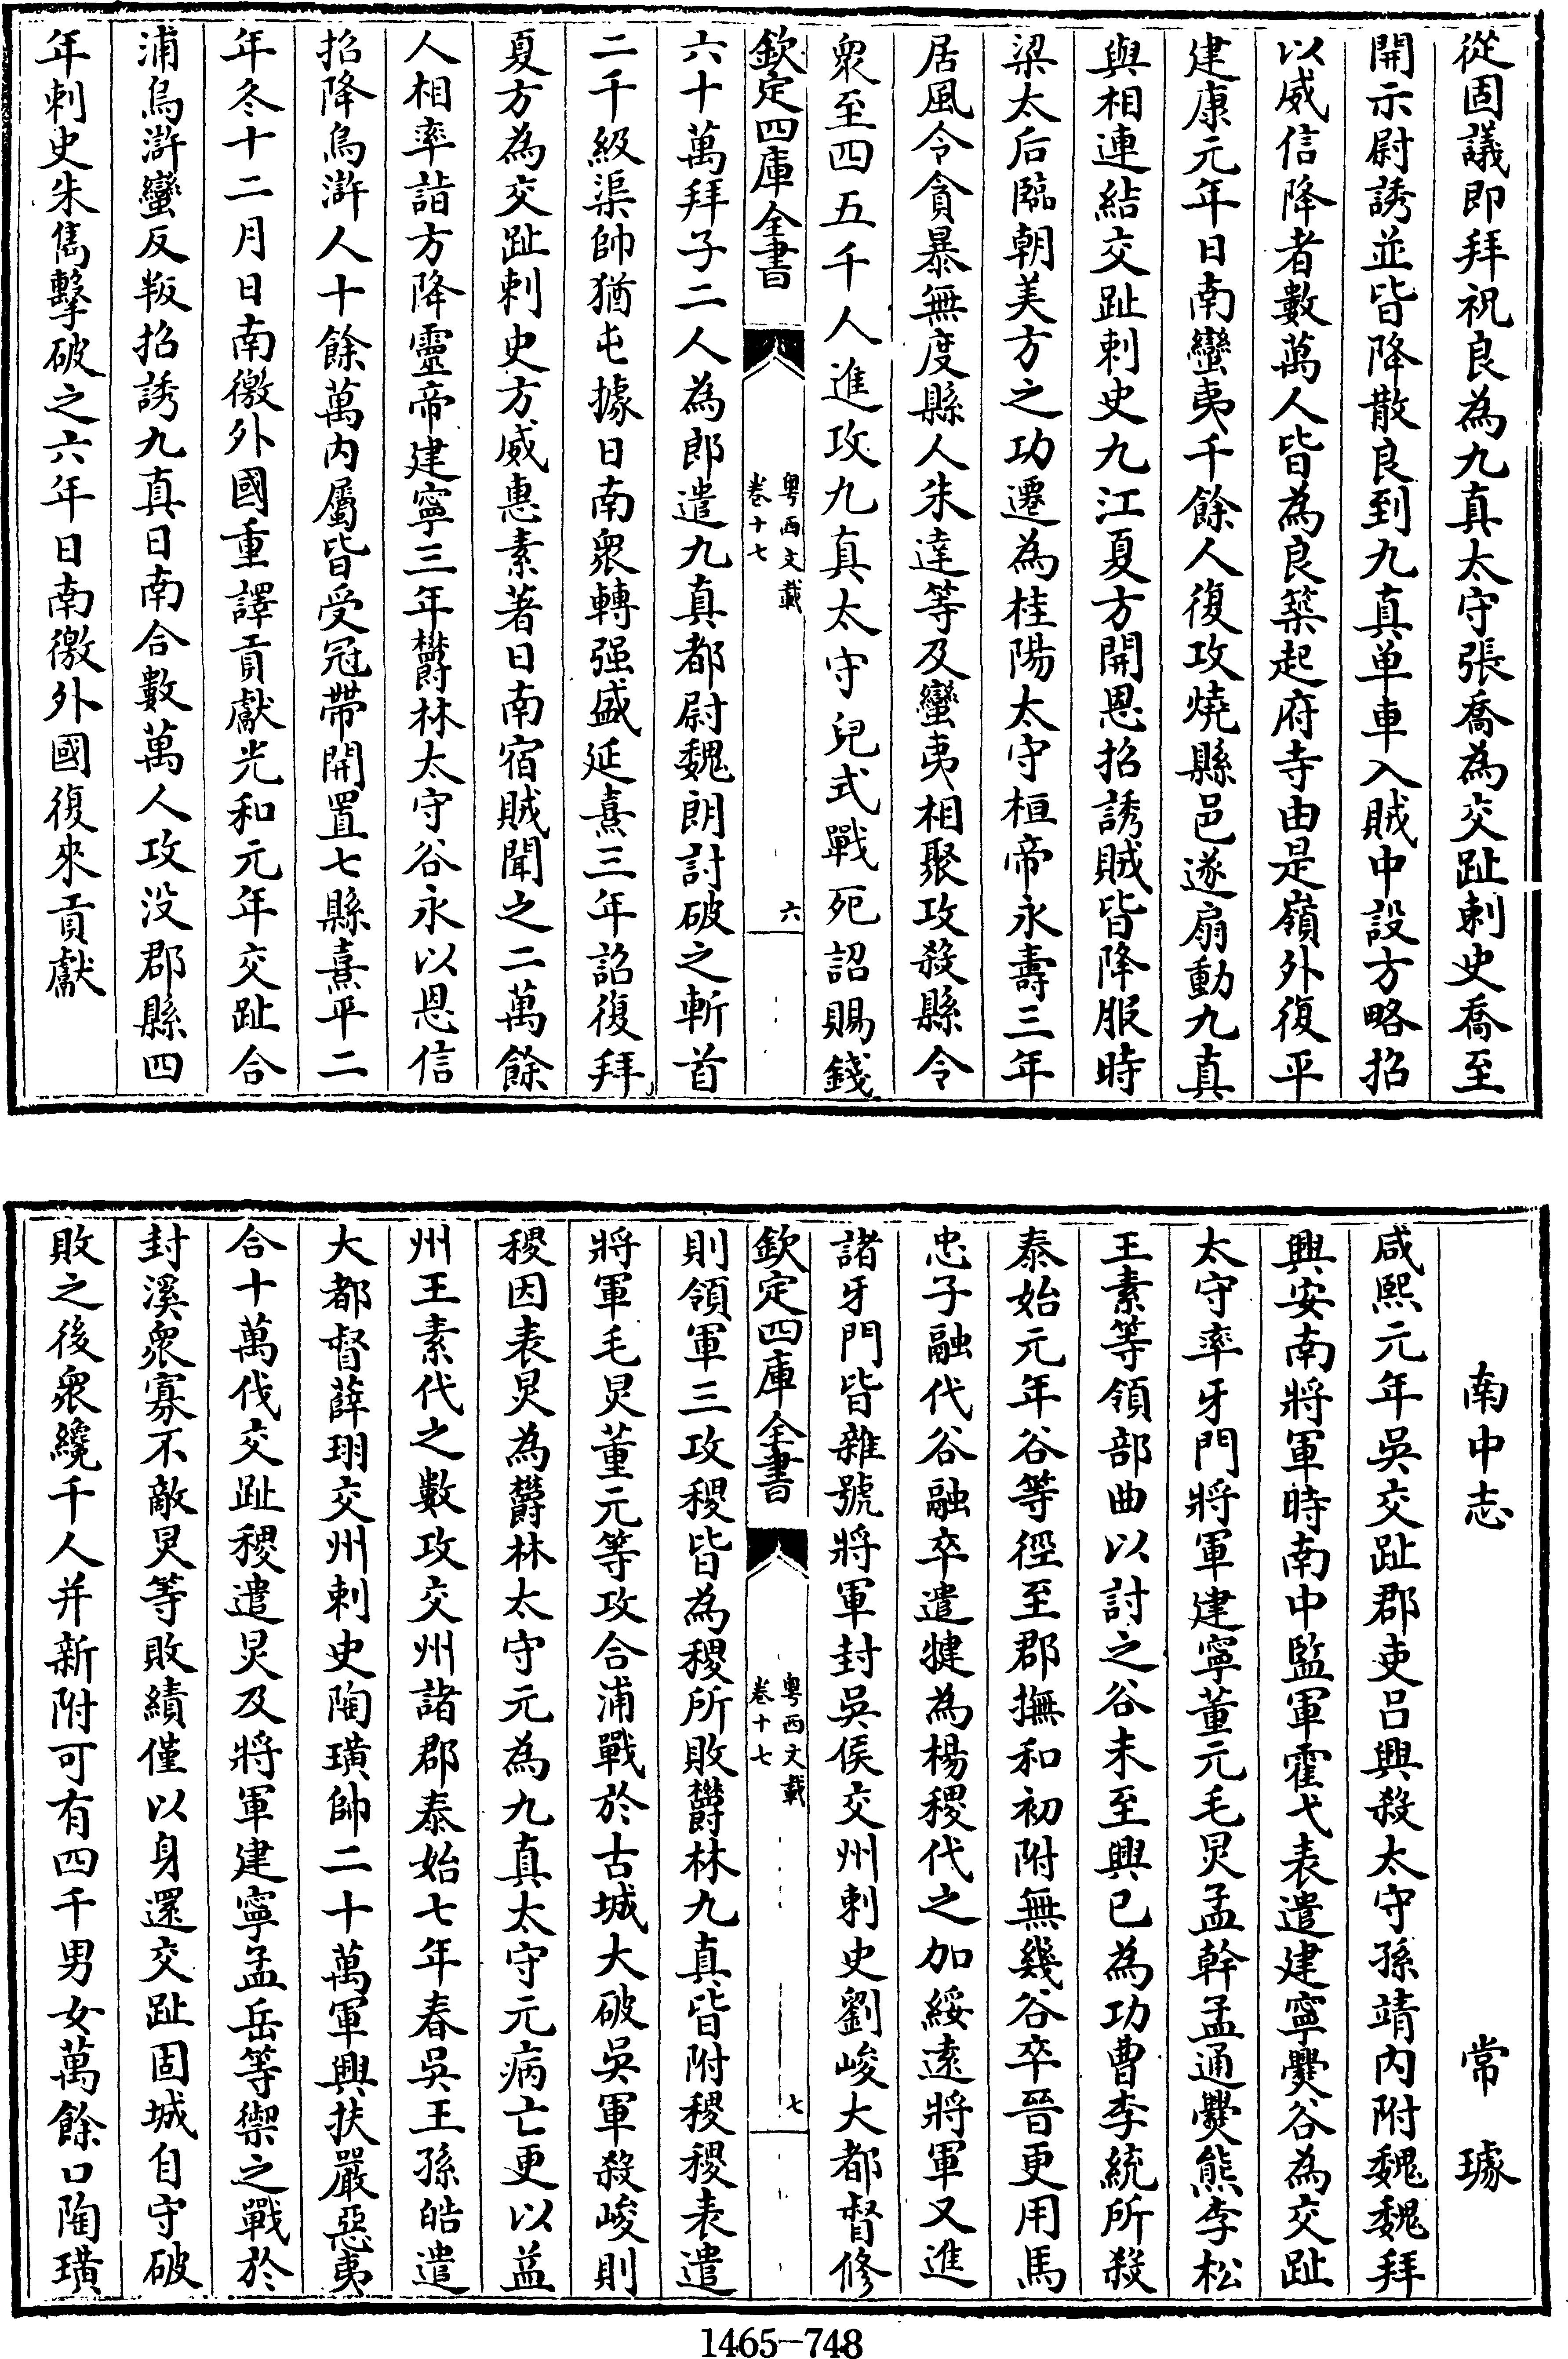 從固議即拜祝良為九真太守張喬為交趾刺史喬至
開示尉誘並皆降散良到九真单車入賊中設方略招
以威信降者數萬人皆為良築起府寺由是嶺外復平
建康元年日南蠻夷千餘人復攻燒縣邑遂扇動九真
與相連結交趾刺史九江夏方開恩招誘賊皆降服時
梁太后臨朝美方之功遷為桂陽太守桓帝永壽三年
居風令貪暴無度縣人朱達等及蠻夷相聚攻殺縣令
衆至四五千人進攻九真太守兒式戰死詔賜錢
欽定四庫全書
粤西文載
卷十七
六
六十萬拜子二人為郎遣九真都尉魏朗討破之斬首
二千級渠帥猶屯據日南衆轉强盛延熹三年詔復拜
夏方為交趾刺史方威惠素著日南宿賊聞之二萬餘
人相率詣方降靈帝建寧三年欝林太守谷永以恩信
招降烏滸人十餘萬内屬皆受冠帶開置七縣熹平二
年冬十二月日南徼外國重譯貢獻光和元年交趾合
浦烏滸蠻反叛招誘九真日南合數萬人攻没郡縣四
年刺史朱雋擊破之六年日南徼外國復來貢獻
南中志 常璩
咸熙元年吳交趾郡吏呂興殺太守孫靖内附魏魏拜
興安南將軍時南中監軍霍弋表遣建寧爨谷為交趾
太守率牙門將軍建寧董元毛炅孟幹孟通爨熊李松
王素等領部曲以討之谷未至興已為功曹李統所殺
泰始元年谷等徑至郡撫和初附無幾谷卒晉更用馬
忠子融代谷融卒遣犍為楊稷代之加綏逺將軍又進
諸牙門皆雜號將軍封吳侯交州刺史劉峻大都督修
欽定四庫全書
粤西文載
卷十七
七
則領軍三攻稷皆為稷所敗欝林九真皆附稷稷表遣
將軍毛炅董元等攻合浦戰於古城大破吳軍殺峻則
稷因表炅為欝林太守元為九真太守元病亡更以益
州王素代之數攻交州諸郡泰始七年春吳王孫皓遣
大都督薛珝交州刺史陶璜帥二十萬軍興扶嚴惡夷
合十萬伐交趾稷遣炅及將軍建寧孟岳等禦之戰於
封溪衆寡不敵炅等敗績僅以身還交趾固城自守破
敗之後衆纔千人并新附可有四千男女萬餘口陶璜
1465-748